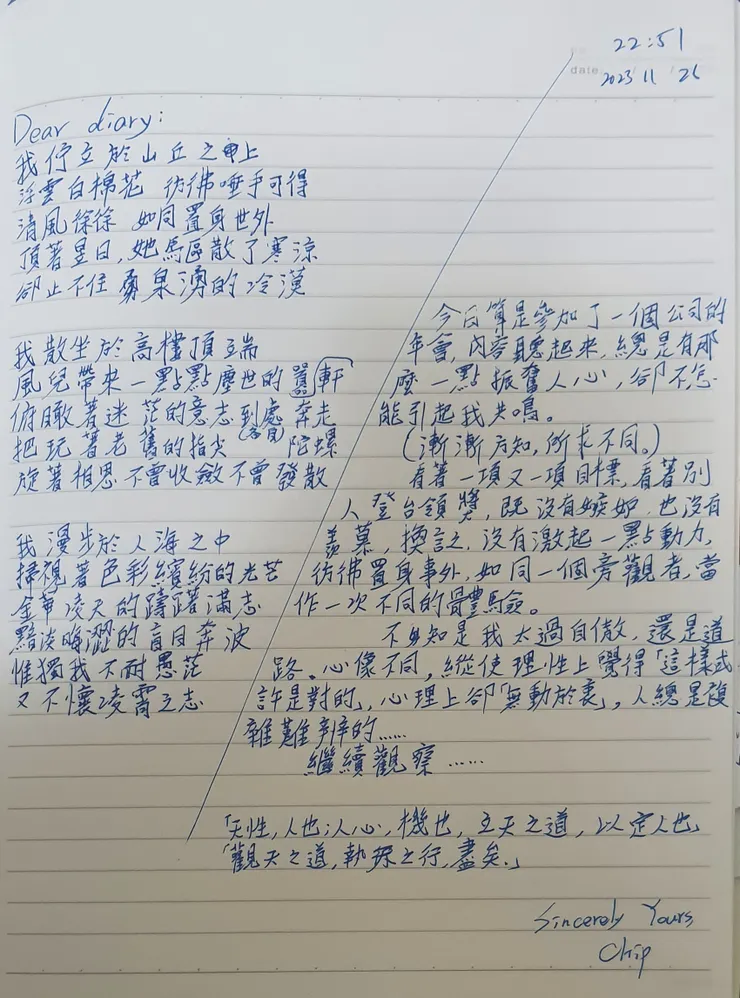 22:51
date
2023 11 26
Dear diary:
我佇立於山丘之上
浮雲白棉花 彷彿唾手可得
清風徐徐 如同置身世外
頂著昱日,她驅散了寒涼
卻止不住 湧的冷漠
我散坐於高樓頂端
風兒帶來一點點塵世的囂軒
俯瞰著迷茫的意志到處奔走
把玩著老舊的指尖陀螺
旋著相思不會收斂不會發散
我漫步於人海之中
掃視著色彩繽紛的光芒
金華凌天的躊躇滿志
黯淡晦澀的盲目奔波
惟獨我不耐愚茫
又不懷凌霄之志
今日算是參加了一個公司的
年會,內容聽起來,總是有那
麼一點振奮人心,卻不怎
能引起我共鳴。
(漸漸方知,所求不同。)
看著一項又一項目標,看著別
人登台領獎,既沒有嫉妒,也沒有
羨慕,換言之,沒有激起一點動力,
彷彿置身事外,如同一個旁觀者,當
作一次不同的體驗。
不知是我太過自傲,還是道
路。心像不同,縱使理性上覺得「這樣或
許是對的」,心理上卻「無動於衷」,人總是複
雜難辨的……
繼續觀察……
「天性,人也;人心,機也,立天之道,以定人也
「觀天之道,執天之行,盡矣.」
Sincerely Yours
Chip